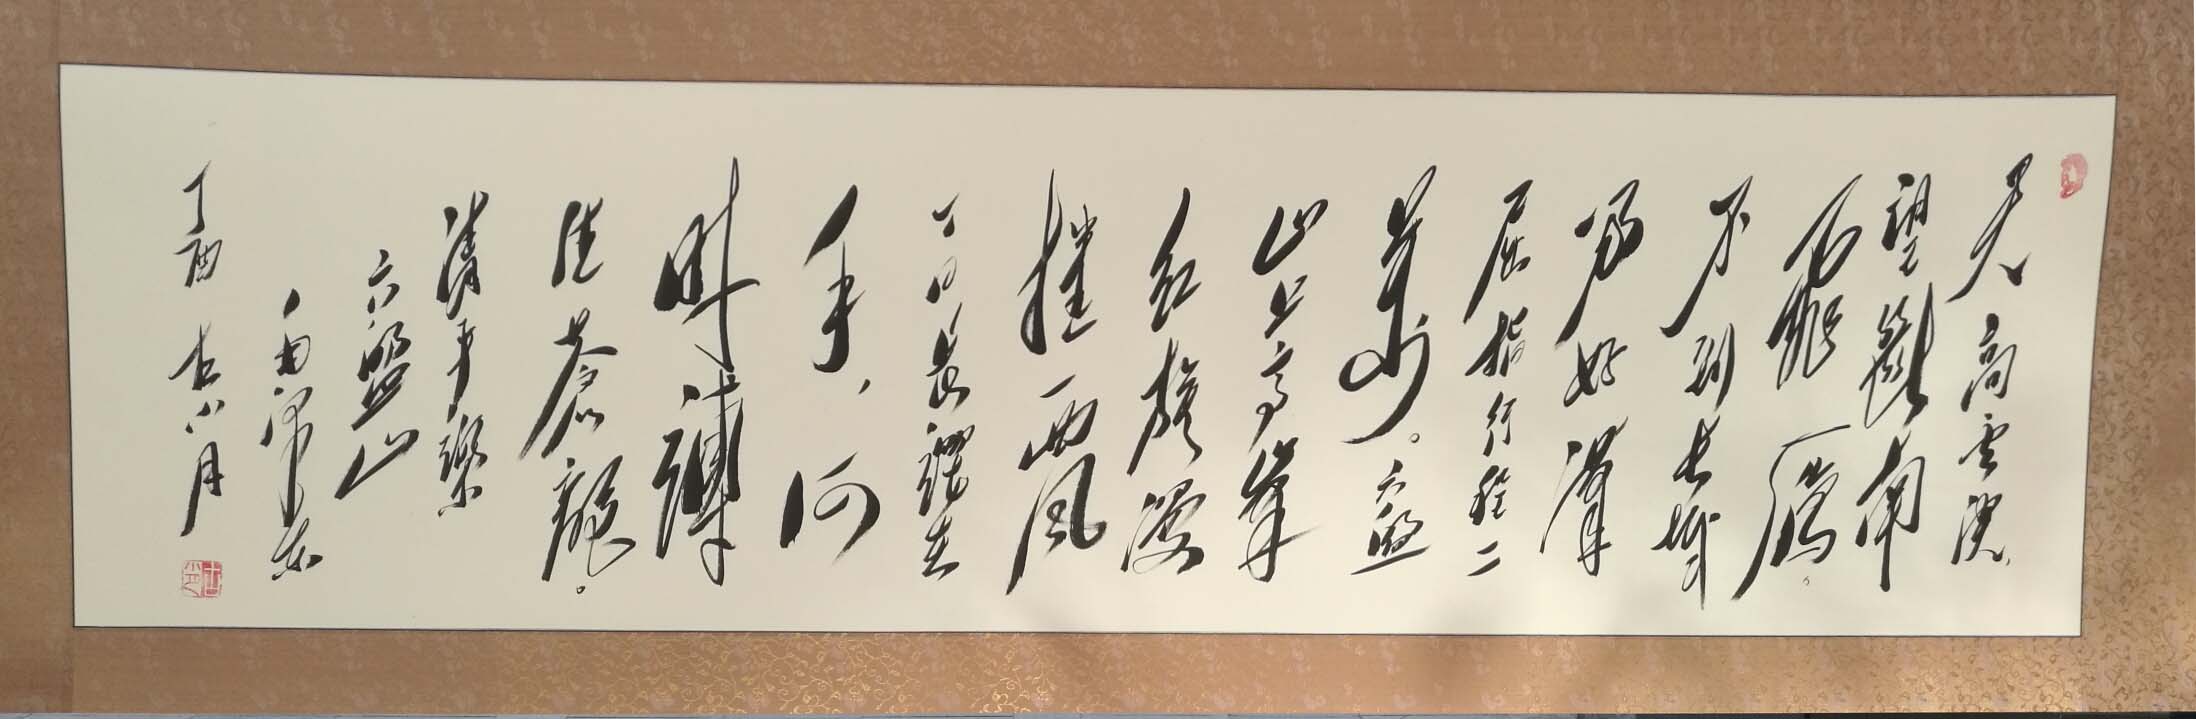 天高云淡,
望斷南
飛雁。
不到长城
非好漢
屈指行程二
萬。六盤
山上高峰
红旗漫
捲西风
今日长缨在
手,何
时縛
住蒼龍。
清平樂
六盤山
毛泽东
丁酉 八月